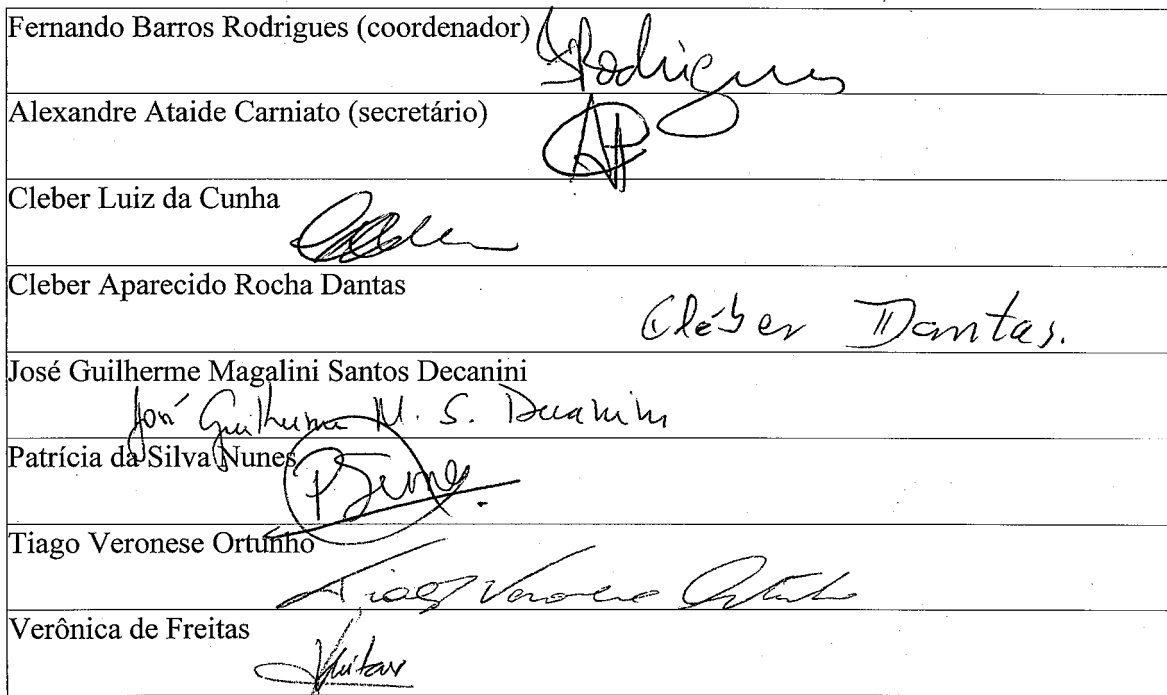 Fernando Barros Rodrigues (coordenador)
Rodrigues
Alexandre Ataide Carniato (secretário)
Cleber Luiz da Cunha
Cleber Aparecido Rocha Dantas
Cléber Dantas.
José Guilherme Magalini Santos Decanini
José Guilherme M. S. Decanini
Patrícia da Silva Nunes
Tiago Veronese Ortunho
Tiago Veronese Ortunho
Verônica de Freitas